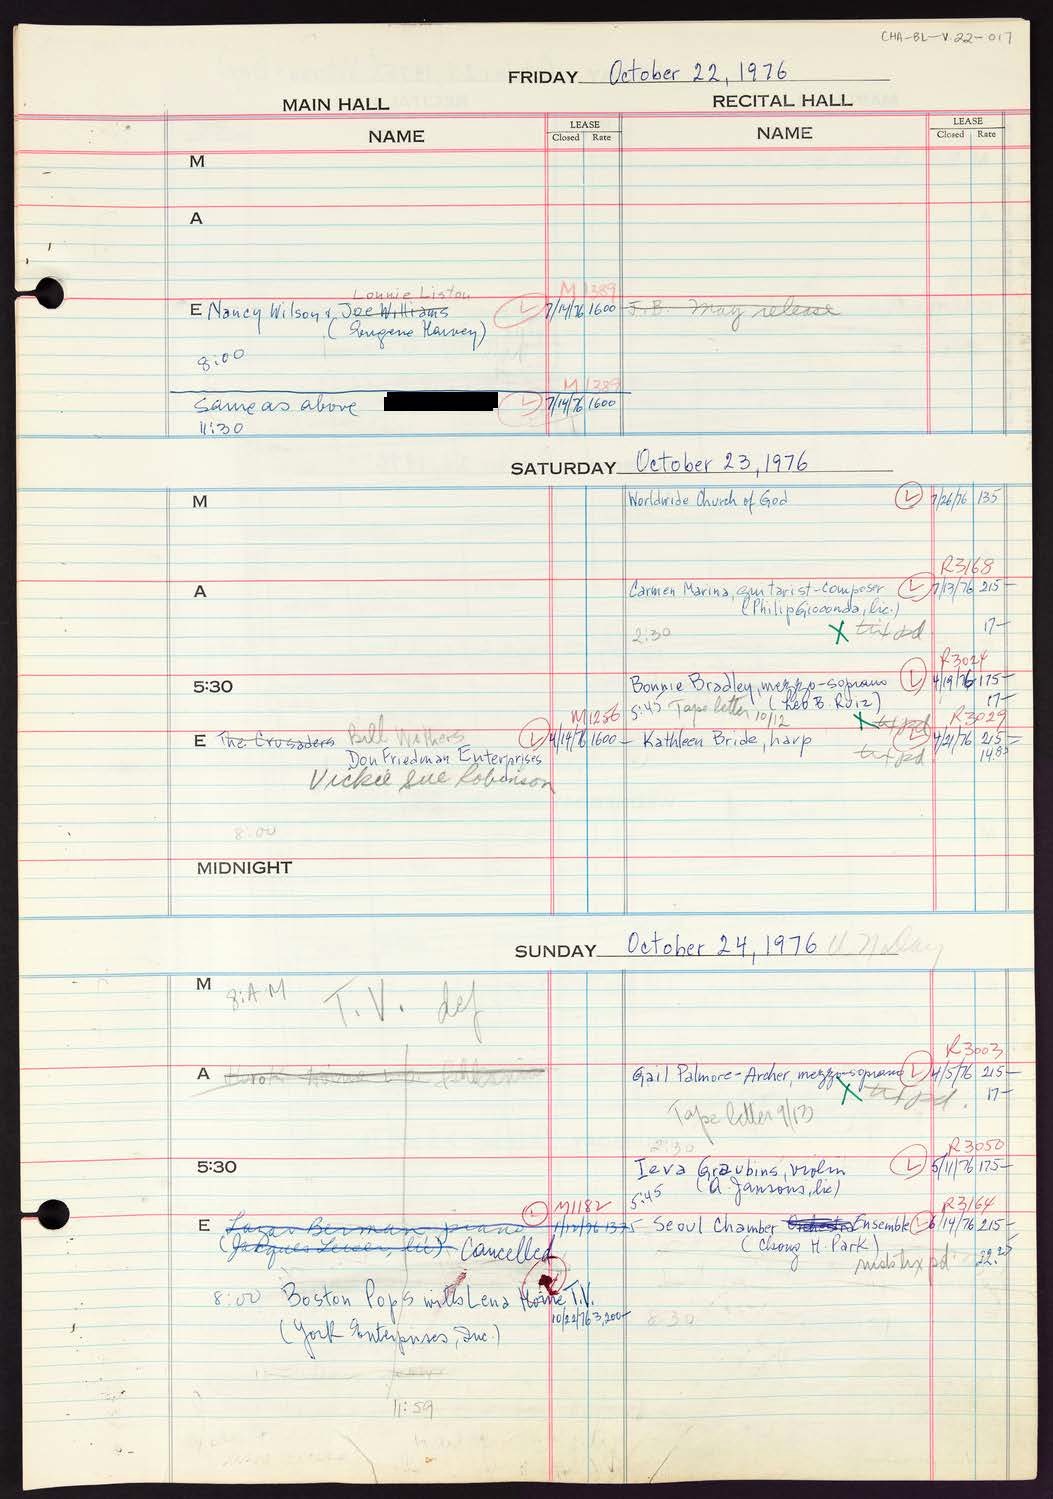 CHA-BL-V.22-017
FRIDAY October 22, 1976
MAIN HALL RECITAL HALL
NAME LEASE Closed Rate NAME LEASE Closed Rate
M
A
Lonnie Liston M 1389
E Nancy Wilson & Joe Williams L 7/14/76 1600 J.B. May release
(Eugene Harvey)
8:00
M 1389
same as above L 7/14/76 1600
11:30
SATURDAY October 23, 1976
M Worldwide Church of God L 7/26/76 135
R3168
A Carmen Marina, guitarist-composer L 7/13/76 215-
(Philip Gioconda, lic.)
2:30 X tix pd 17-
R3024
5:30 Bonnie Bradley, mezzo-soprano L 4/19/76 175-
5:45 Tape letter 10/12 (Leo B. Ruiz) 17-
M1256 X tix pd R3029
E The Crusaders Bill Withers L 4/14/76 1600- Kathleen Bride, harp L 4/21/76 215-
Don Friedman Enterprises tix pd
Vickie Sue Robinson
8:00
MIDNIGHT
SUNDAY October 24, 1976 U.N. Day
M 8:AM T.V. def
R3003
A Gail Palmore-Archer, mezzo-soprano L 4/5/76 215-
X tix pd. 17-
Tape letter 9/13
2:30 R3050
5:30 Ieva Graubins, violin L 5/11/76 175-
5:45 (A. Jansons, lic)
M1182 R3164
E Lazar Berman, piano L 1375 Seoul Chamber Orchestra Ensemble L 6/14/76 215-
(Jacques Leiser, lic) Cancelled (Chong H. Park)
tix pd
8:00 Boston Pops with Lena Horne T.V.
10/22/76 3,200-
(York Enterprises, Inc.) 8:30
11:59